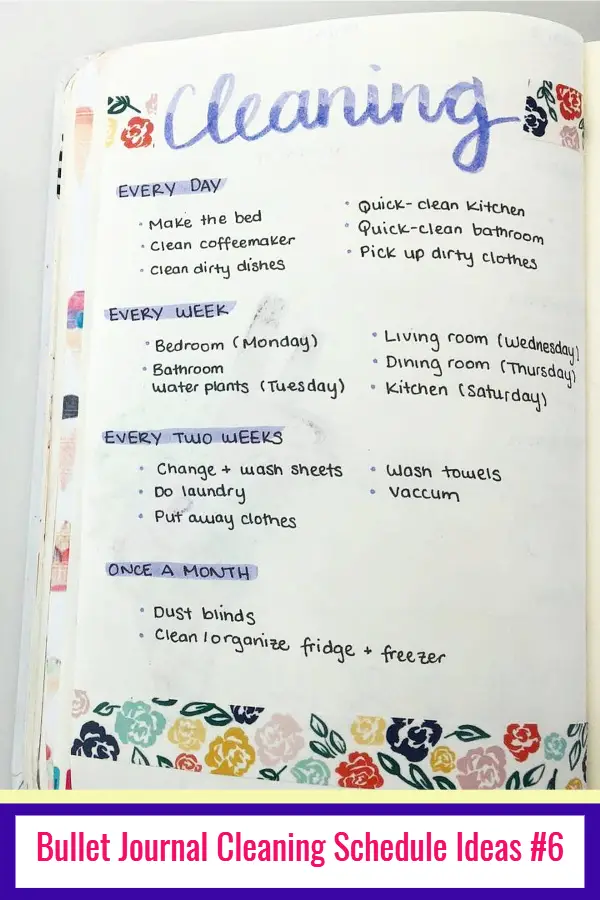 Cleaning
EVERY DAY
• Make the bed
• Clean coffeemaker
• Clean dirty dishes
• Quick-clean Kitchen
• Quick-clean bathroom
• Pick up dirty clothes
EVERY WEEK
• Bedroom (Monday)
• Bathroom
water plants (Tuesday)
• Living room (Wednesday)
• Dining room (Thursday)
• Kitchen (Saturday)
EVERY TWO WEEKS
• Change + wash sheets
• Do laundry
• Put away clothes
• Wash towels
• Vaccum
ONCE A MONTH
• Dust blinds
• Clean/organize fridge + freezer
Bullet Journal Cleaning Schedule Ideas #6